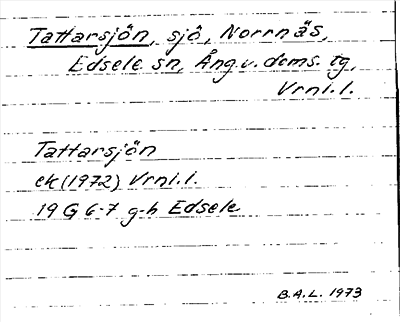 Tattarsjön, sjö, Norrnäs,
Edsele sn, Ång. v. doms. tg,
Vrnl.l.
Tattarsjön
ek (1972) Vrnl.l.
19 G 6-7 g-h Edsele
B.A.L. 1973